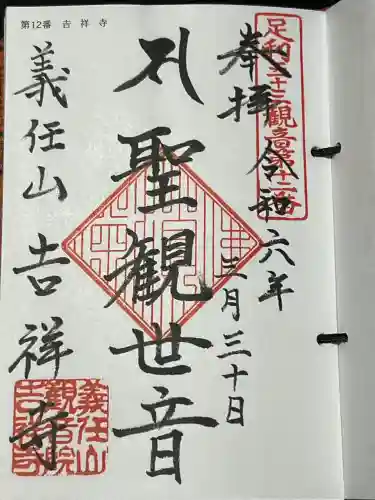 第12番 吉祥寺
足利三十三観音第十二番
奉拝 令和六年
三月三十日
聖観世音
義任山 吉祥寺
義任山
観音院
吉祥寺